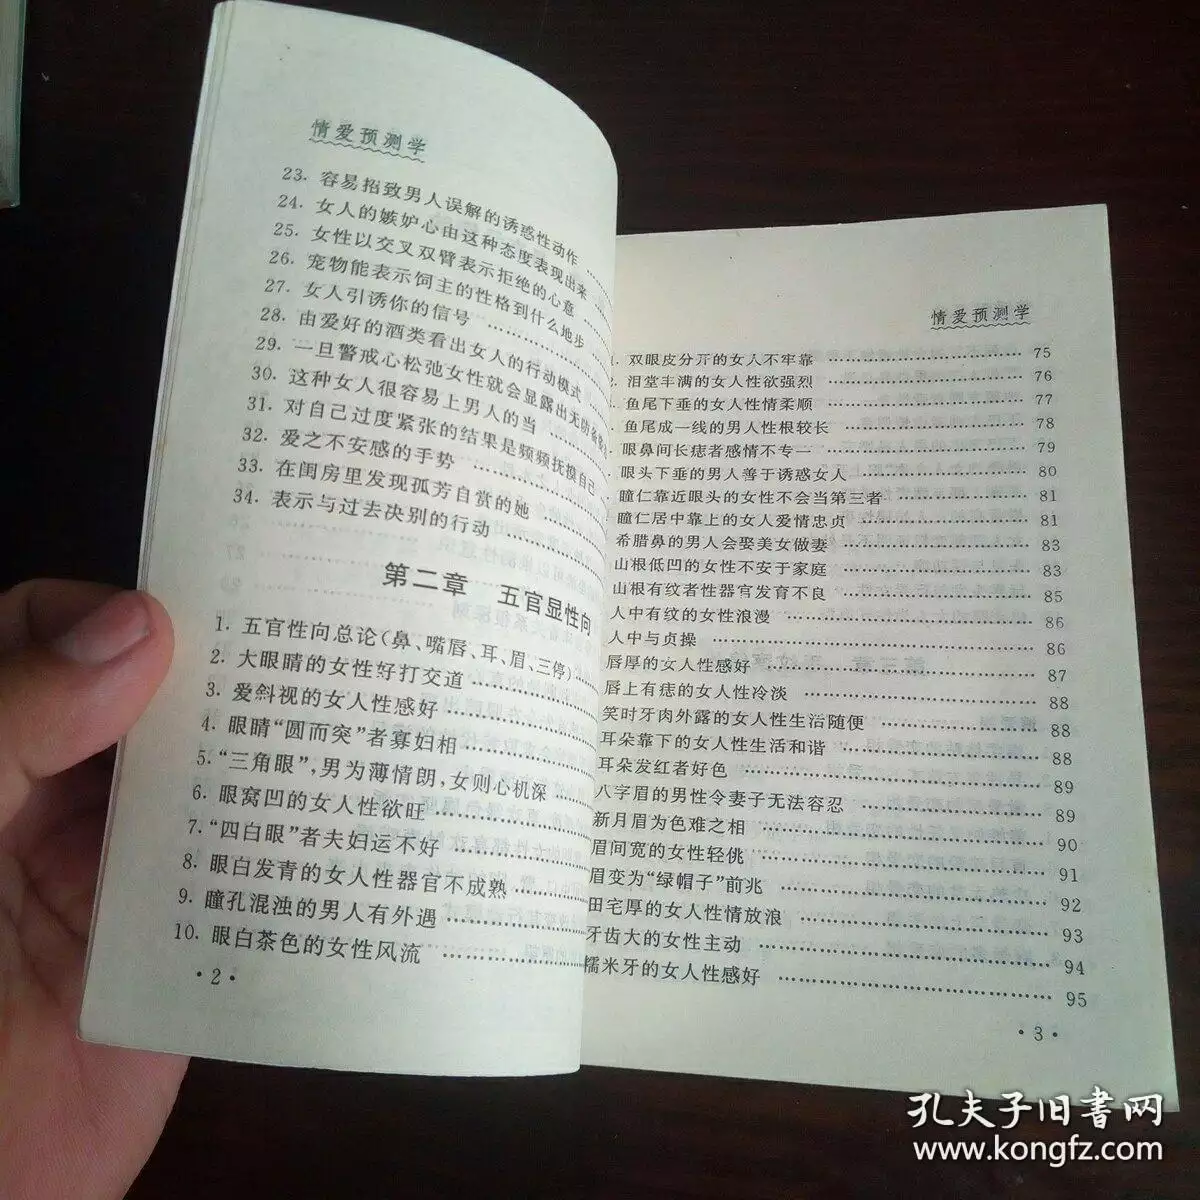 情爱预测学
23. 容易招致男人误解的诱惑性动作
24. 女人的嫉妒心由这种态度表现出来
25. 女性以交叉双臂表示拒绝的心意
26. 宠物能表示饲主的性格到什么地步
27. 女人引诱你的信号
28. 由爱好的酒类看出女人的行动模式
29. 一旦警戒心松弛女性就会显露出无防备
30. 这种女人很容易上男人的当
31. 对自己过度紧张的结果是频频抚摸自己
32. 爱之不安感的手势
33. 在闺房里发现孤芳自赏的她
34. 表示与过去决别的行动
第二章 五官显性向
1. 五官性向总论(鼻、嘴唇、耳、眉、三停)
2. 大眼睛的女性好打交道
3. 爱斜视的女人性感好
4. 眼睛“圆而突”者寡妇相
5. “三角眼”,男为薄情朗,女则心机深
6. 眼窝凹的女人性欲旺
7. “四白眼”者夫妇运不好
8. 眼白发青的女人性器官不成熟
9. 瞳孔混浊的男人有外遇
10. 眼白茶色的女性风流
·2·
情爱预测学
双眼皮分开的女人不牢靠 75
泪堂丰满的女人性欲强烈 76
鱼尾下垂的女人性情柔顺 77
鱼尾成一线的男人性根较长 78
眼鼻间长痣者感情不专一 79
眼头下垂的男人善于诱惑女人 80
瞳仁靠近眼头的女性不会当第三者 81
瞳仁居中靠上的女人爱情忠贞 81
希腊鼻的男人会娶美女做妻 83
山根低凹的女性不安于家庭 83
山根有纹者性器官发育不良 85
人中有纹的女性浪漫 86
人中与贞操 86
唇厚的女人性感好 87
唇上有痣的女人性冷淡 88
笑时牙肉外露的女人性生活随便 88
耳朵靠下的女人性生活和谐 88
耳朵发红者好色 89
八字眉的男性令妻子无法容忍 89
新月眉为色难之相 90
眉间宽的女性轻佻 91
眉变为“绿帽子”前兆 92
田宅厚的女人性情放浪 93
牙齿大的女性主动 94
糯米牙的女人性感好 95
·3·
孔夫子旧书网
www.kongfz.com